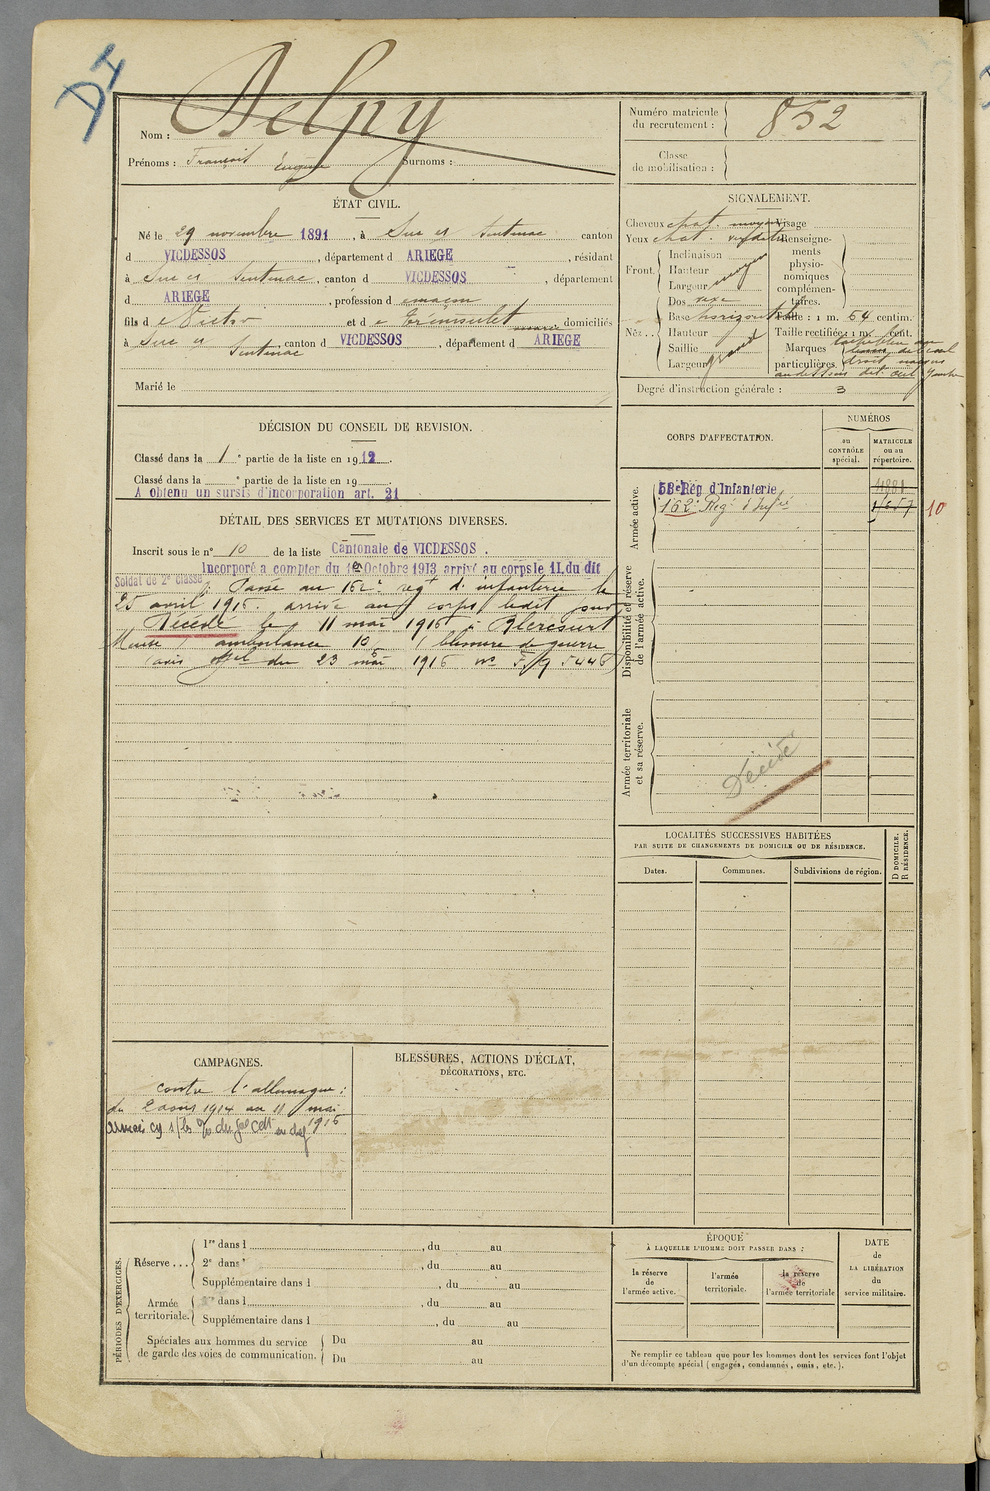 DI
Nom : Delpy
Prénoms : François Eugène Surnoms :
Numéro matricule du recrutement : 852
Classe de mobilisation :
ÉTAT CIVIL.
Né le 29 novembre 1891, à Suc et Sentenac canton
d VICDESSOS, département d ARIEGE, résidant
à Suc et Sentenac, canton d VICDESSOS, département
d ARIEGE, profession d
fils d e Victor et d e domiciliés
à Suc et Sentenac, canton d VICDESSOS, département d ARIEGE
Marié le
SIGNALEMENT.
Cheveux chat. moyen Visage
Yeux chat. Renseignements physionomiques complémentaires.
Front. Inclinaison
Hauteur moyen
Largeur
Nez. Dos vexe
Base horizontale
Hauteur
Saillie grand
Largeur
Taille : 1 m. 64 centim.
Taille rectifiée : 1 m. cent.
Marques particulières. droit
au dessous de l'œil gauche
Degré d'instruction générale : 3
DÉCISION DU CONSEIL DE REVISION.
Classé dans la 1e partie de la liste en 1912.
Classé dans la e partie de la liste en 19 .
A obtenu un sursis d'incorporation art. 21
CORPS D'AFFECTATION.
NUMÉROS
au CONTRÔLE spécial.
MATRICULE ou au répertoire.
Armée active.
Rég d'Infanterie
162e Regt d'Infie 10
Disponibilité et réserve de l'armée active.
Armée territoriale et sa réserve.
Décédé
DÉTAIL DES SERVICES ET MUTATIONS DIVERSES.
Inscrit sous le n° 10 de la liste Cantonale de VICDESSOS .
Incorporé a compter du 1er Octobre 1913 arrivé au corps le 11 du dit
Soldat de 2e classe. Passé au 162e regt d'infanterie le
25 avril 1916. arrivé au corps ledit jour
Décédé le 11 mai 1916 à Blercourt
Meuse ambulance 10 ( blessure de guerre
(avis du 23 mai 1916
LOCALITÉS SUCCESSIVES HABITÉES
PAR SUITE DE CHANGEMENTS DE DOMICILE OU DE RÉSIDENCE.
Dates.
Communes.
Subdivisions de région.
D DOMICILE. R RÉSIDENCE.
CAMPAGNES.
contre l'allemagne :
du 2 aout 1914 au 11 mai
1916
BLESSURES, ACTIONS D'ÉCLAT,
DÉCORATIONS, ETC.
PÉRIODES D'EXERCICES.
Réserve ... 1re dans l , du au
2e dans , du au
Supplémentaire dans l , du au
Armée territoriale. dans l , du au
Supplémentaire dans l , du au
Spéciales aux hommes du service de garde des voies de communication. Du au
Du au
ÉPOQUE
À LAQUELLE L'HOMME DOIT PASSER DANS :
la réserve de l'armée active.
l'armée territoriale.
la réserve de l'armée territoriale
DATE de LA LIBÉRATION du service militaire.
Ne remplir ce tableau que pour les hommes dont les services font l'objet
d'un décompte spécial (engagés, condamnés, omis, etc.).